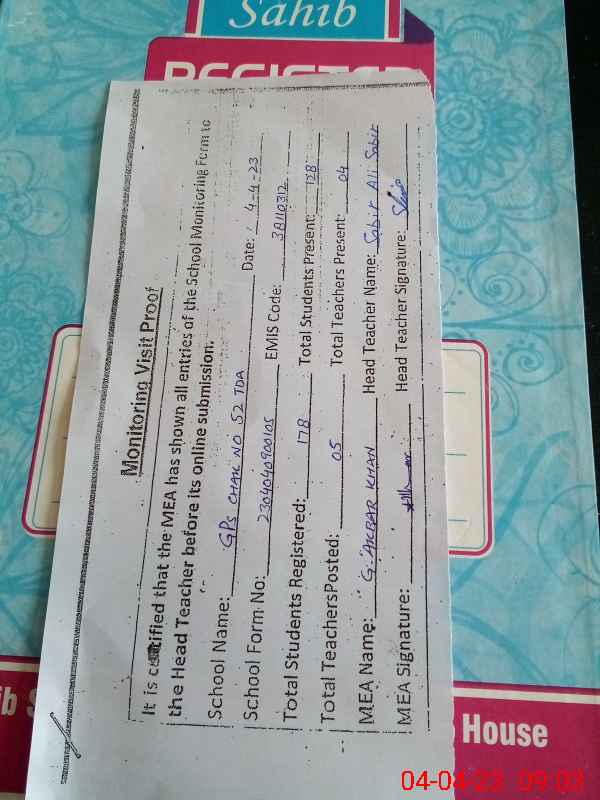 Sahib
REGISTER
Monitoring Visit Proof
It is certified that the MEA has shown all entries of the School Monitoring Form to
the Head Teacher before its online submission.
School Name: GPS CHAK NO 52 TDA Date: 4-4-23
School Form No: 2304040900105 EMIS Code: 38110312
Total Students Registered: 178 Total Students Present: 128
Total TeachersPosted: 05 Total Teachers Present: 04
MEA Name: G. AKBAR KHAN Head Teacher Name: Sabir Ali Sabir
MEA Signature: Head Teacher Signature:
House
04-04-23 09:03